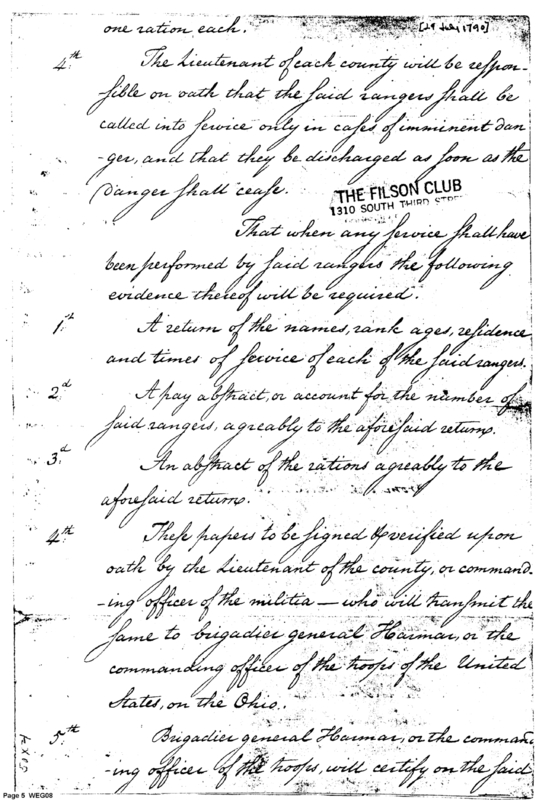 one ration each. [29 July 1790]
4th The Lieutenant of each county will be respon-
sible on oath that the said rangers shall be
called into service only in cases of imminent dan
-ger, and that they be discharged as soon as the
danger shall cease.
THE FILSON CLUB
1310 SOUTH THIRD STREET
That when any service shall have
been performed by said rangers the following
evidence thereof will be required.
1st A return of the names, rank ages, residence
and times of service of each of the said rangers.
2d A pay abstract, or account for the number of
said rangers, agreably to the aforesaid return.
3d An abstract of the rations agreably to the
aforesaid return.
4th These papers to be signed & verified upon
oath by the Lieutenant of the county, or command-
-ing officer of the militia — who will transmit the
same to brigadier general Harmar, or the
commanding officer of the troops of the United
States, on the Ohio.
5th Brigadier general Harmar, or the command
-ing officer of the troops, will certify on the said
Page 5 WEG08